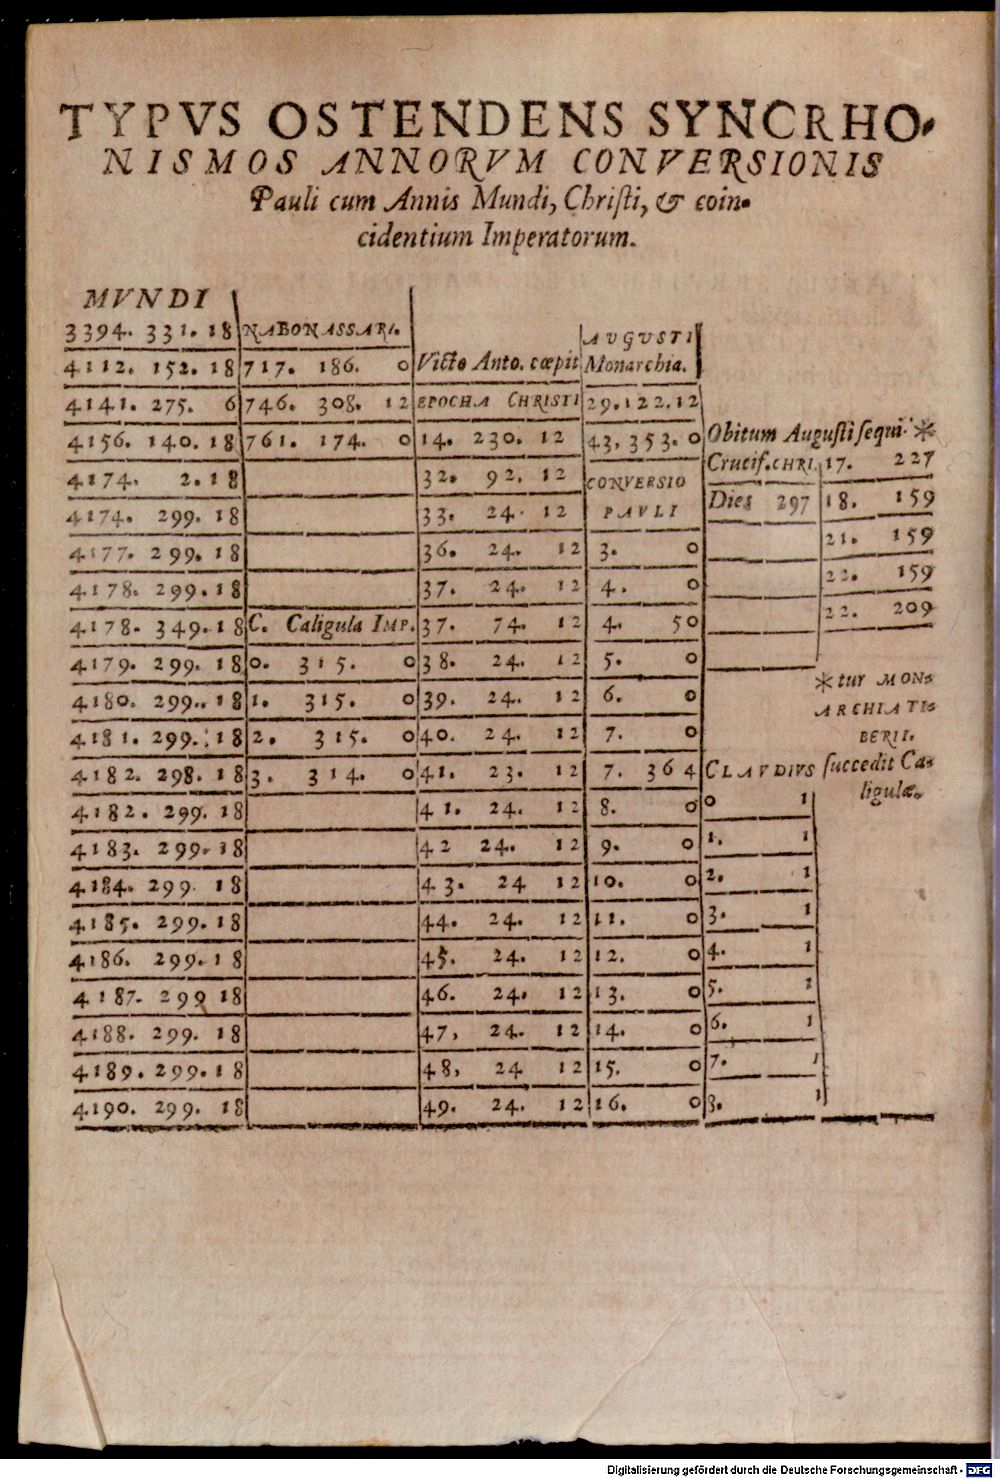 TYPVS OSTENDENS SYNCRHO-
NISMOS ANNORVM CONVERSIONIS
Pauli cum Annis Mundi, Chriſti, & coin-
cidentium Imperatorum.
MVNDI
3394. 331. 18 NABONASSARI. AVGVSTI
4112. 152. 18 717. 186. 0 Victo Anto. cœpit Monarchia.
4141. 275. 6 746. 308. 12 EPOCHA CHRISTI 29. 122. 12
4156. 140. 18 761. 174. 0 14. 230. 12 43, 353. 0 Obitum Auguſti ſequi *
4174. 2. 18 32. 92. 12 CONVERSIO Crucif. CHRI. 17. 227
4174. 299. 18 33. 24. 12 PAVLI Dies 297 18. 159
4177. 299. 18 36. 24. 12 3. 0 21. 159
4178. 299. 18 37. 24. 12 4. 0 22. 159
4178. 349. 18 C. Caligula IMP. 37. 74. 12 4. 50 22. 209
4179. 299. 18 0. 315. 0 38. 24. 12 5. 0
4180. 299. 18 1. 315. 0 39. 24. 12 6. 0 * tur MON-
ARCHIA TI-
4181. 299. 18 2. 315. 0 40. 24. 12 7. 0 BERII.
4182. 298. 18 3. 314. 0 41. 23. 12 7. 364 CLAVDIVS ſuccedit Ca-
ligulæ.
4182. 299. 18 41. 24. 12 8. 0 0 1
4183. 299. 18 42 24. 12 9. 0 1. 1
4184. 299. 18 43. 24 12 10. 0 2. 1
4185. 299. 18 44. 24. 12 11. 0 3. 1
4186. 299. 18 45. 24. 12 12. 0 4. 1
4187. 299 18 46. 24. 12 13. 0 5. 1
4188. 299. 18 47, 24. 12 14. 0 6. 1
4189. 299. 18 48, 24 12 15. 0 7. 1
4190. 299. 18 49. 24. 12 16. 0 8. 1
Digitalisierung gefördert durch die Deutsche Forschungsgemeinschaft - DFG